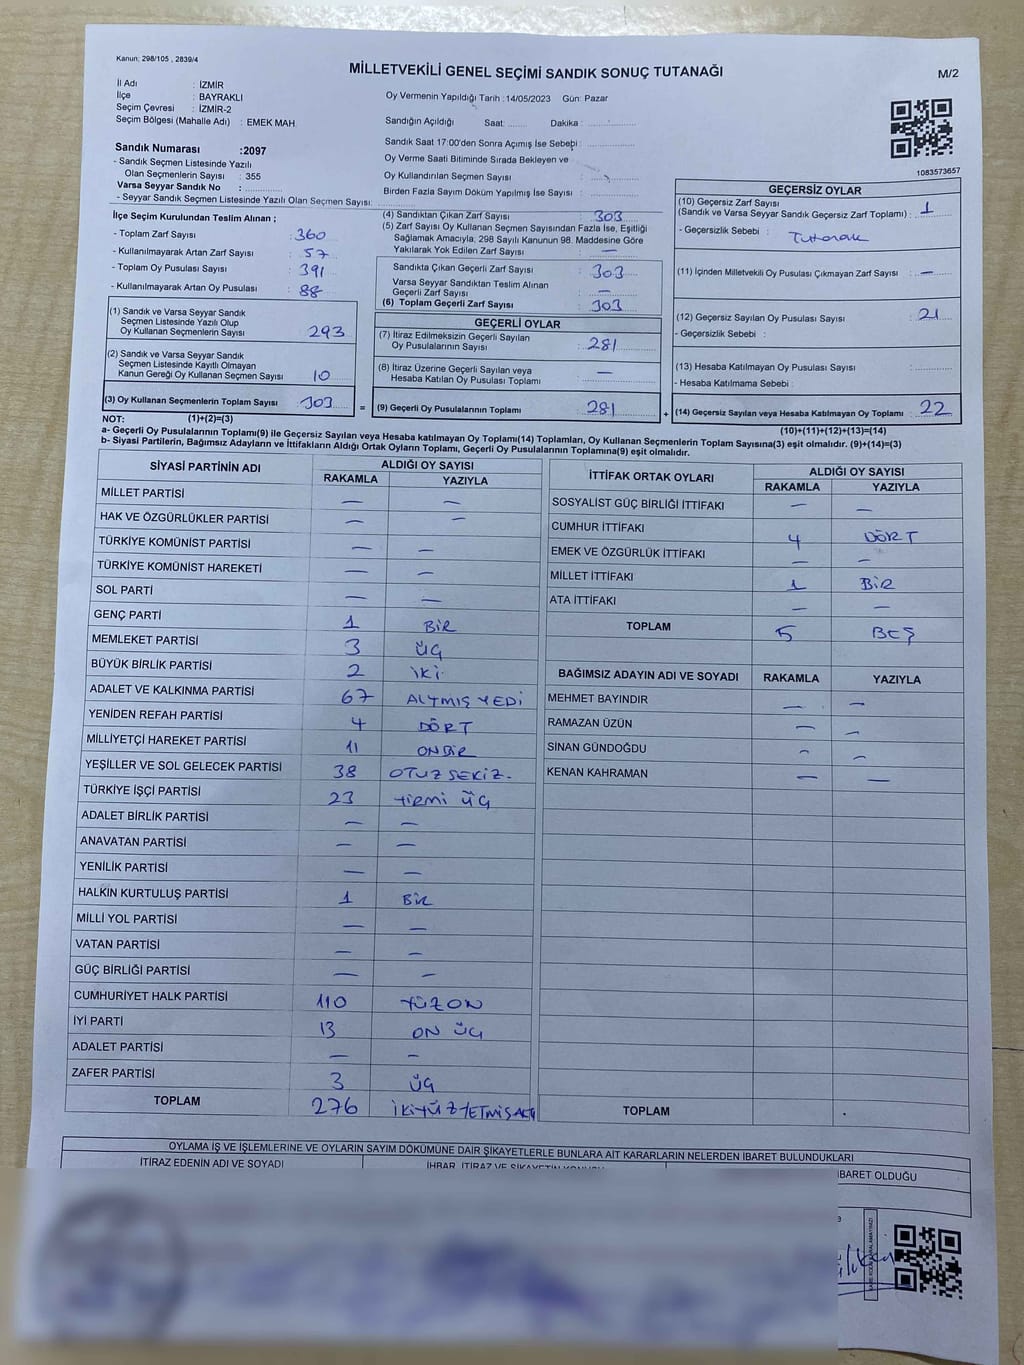 Kanun: 298/105 , 2839/4
MİLLETVEKİLİ GENEL SEÇİMİ SANDIK SONUÇ TUTANAĞI
M/2
İl Adı : İZMİR
İlçe : BAYRAKLI
Seçim Çevresi : İZMİR-2
Seçim Bölgesi (Mahalle Adı) : EMEK MAH.
Oy Vermenin Yapıldığı Tarih :14/05/2023 Gün: Pazar
Sandığın Açıldığı Saat: ........ Dakika : ................
Sandık Saat 17:00'den Sonra Açımış İse Sebebi : ................
Oy Verme Saati Bitiminde Sırada Bekleyen ve
Oy Kullandırılan Seçmen Sayısı : ................
Birden Fazla Sayım Döküm Yapılmış İse Sayısı : ................
Sandık Numarası :2097
- Sandık Seçmen Listesinde Yazılı
Olan Seçmenlerin Sayısı : 355
Varsa Seyyar Sandık No : ............
- Seyyar Sandık Seçmen Listesinde Yazılı Olan Seçmen Sayısı: ............
1083573657
İlçe Seçim Kurulundan Teslim Alınan ;
- Toplam Zarf Sayısı : 360
- Kullanılmayarak Artan Zarf Sayısı : 57
- Toplam Oy Pusulası Sayısı : 391
- Kullanılmayarak Artan Oy Pusulası : 88
(1) Sandık ve Varsa Seyyar Sandık
Seçmen Listesinde Yazılı Olup
Oy Kullanan Seçmenlerin Sayısı : 293
(2) Sandık ve Varsa Seyyar Sandık
Seçmen Listesinde Kayıtlı Olmayan
Kanun Gereği Oy Kullanan Seçmen Sayısı : 10
(3) Oy Kullanan Seçmenlerin Toplam Sayısı : 303
(4) Sandıktan Çıkan Zarf Sayısı : 303
(5) Zarf Sayısı Oy Kullanan Seçmen Sayısından Fazla İse, Eşitliği
Sağlamak Amacıyla, 298 Sayılı Kanunun 98. Maddesine Göre
Yakılarak Yok Edilen Zarf Sayısı : —
Sandıkta Çıkan Geçerli Zarf Sayısı : 303
Varsa Seyyar Sandıktan Teslim Alınan
Geçerli Zarf Sayısı : —
(6) Toplam Geçerli Zarf Sayısı : 303
GEÇERLİ OYLAR
(7) İtiraz Edilmeksizin Geçerli Sayılan
Oy Pusulalarının Sayısı : 281
(8) İtiraz Üzerine Geçerli Sayılan veya
Hesaba Katılan Oy Pusulası Toplamı : —
= (9) Geçerli Oy Pusulalarının Toplamı : 281 +
GEÇERSİZ OYLAR
(10) Geçersiz Zarf Sayısı
(Sandık ve Varsa Seyyar Sandık Geçersiz Zarf Toplamı) : 1
- Geçersizlik Sebebi : Tutanak
(11) İçinden Milletvekili Oy Pusulası Çıkmayan Zarf Sayısı : —
(12) Geçersiz Sayılan Oy Pusulası Sayısı : 21
- Geçersizlik Sebebi :
(13) Hesaba Katılmayan Oy Pusulası Sayısı : ............
- Hesaba Katılmama Sebebi :
(14) Geçersiz Sayılan veya Hesaba Katılmayan Oy Toplamı : 22
NOT: (1)+(2)=(3)
(10)+(11)+(12)+(13)=(14)
a- Geçerli Oy Pusulalarının Toplamı(9) ile Geçersiz Sayılan veya Hesaba katılmayan Oy Toplamı(14) Toplamları, Oy Kullanan Seçmenlerin Toplam Sayısına(3) eşit olmalıdır. (9)+(14)=(3)
b- Siyasi Partilerin, Bağımsız Adayların ve İttifakların Aldığı Ortak Oyların Toplamı, Geçerli Oy Pusulalarının Toplamına(9) eşit olmalıdır.
SİYASİ PARTİNİN ADI ALDIĞI OY SAYISI
RAKAMLA YAZIYLA
MİLLET PARTİSİ — —
HAK VE ÖZGÜRLÜKLER PARTİSİ — —
TÜRKİYE KOMÜNİST PARTİSİ — —
TÜRKİYE KOMÜNİST HAREKETİ — —
SOL PARTİ — —
GENÇ PARTİ 1 BİR
MEMLEKET PARTİSİ 3 ÜÇ
BÜYÜK BİRLİK PARTİSİ 2 İKİ
ADALET VE KALKINMA PARTİSİ 67 ALTMIŞ YEDİ
YENİDEN REFAH PARTİSİ 4 DÖRT
MİLLİYETÇİ HAREKET PARTİSİ 11 ONBİR
YEŞİLLER VE SOL GELECEK PARTİSİ 38 OTUZ SEKİZ
TÜRKİYE İŞÇİ PARTİSİ 23 YİRMİ ÜÇ
ADALET BİRLİK PARTİSİ — —
ANAVATAN PARTİSİ — —
YENİLİK PARTİSİ — —
HALKIN KURTULUŞ PARTİSİ 1 BİR
MİLLİ YOL PARTİSİ — —
VATAN PARTİSİ — —
GÜÇ BİRLİĞİ PARTİSİ — —
CUMHURİYET HALK PARTİSİ 110 YÜZ ON
İYİ PARTİ 13 ON ÜÇ
ADALET PARTİSİ — —
ZAFER PARTİSİ 3 ÜÇ
TOPLAM 276 İKİYÜZ YETMİŞ ALTI
İTTİFAK ORTAK OYLARI ALDIĞI OY SAYISI
RAKAMLA YAZIYLA
SOSYALİST GÜÇ BİRLİĞİ İTTİFAKI — —
CUMHUR İTTİFAKI 4 DÖRT
EMEK VE ÖZGÜRLÜK İTTİFAKI — —
MİLLET İTTİFAKI 1 BİR
ATA İTTİFAKI — —
TOPLAM 5 BEŞ
BAĞIMSIZ ADAYIN ADI VE SOYADI RAKAMLA YAZIYLA
MEHMET BAYINDIR — —
RAMAZAN ÜZÜN — —
SİNAN GÜNDOĞDU — —
KENAN KAHRAMAN — —
TOPLAM
OYLAMA İŞ VE İŞLEMLERİNE VE OYLARIN SAYIM DÖKÜMÜNE DAİR ŞİKAYETLERLE BUNLARA AİT KARARLARIN NELERDEN İBARET BULUNDUKLARI
İTİRAZ EDENİN ADI VE SOYADI İHBAR, İTİRAZ VE ŞİKAYETİN KONUSU İBARET OLDUĞU